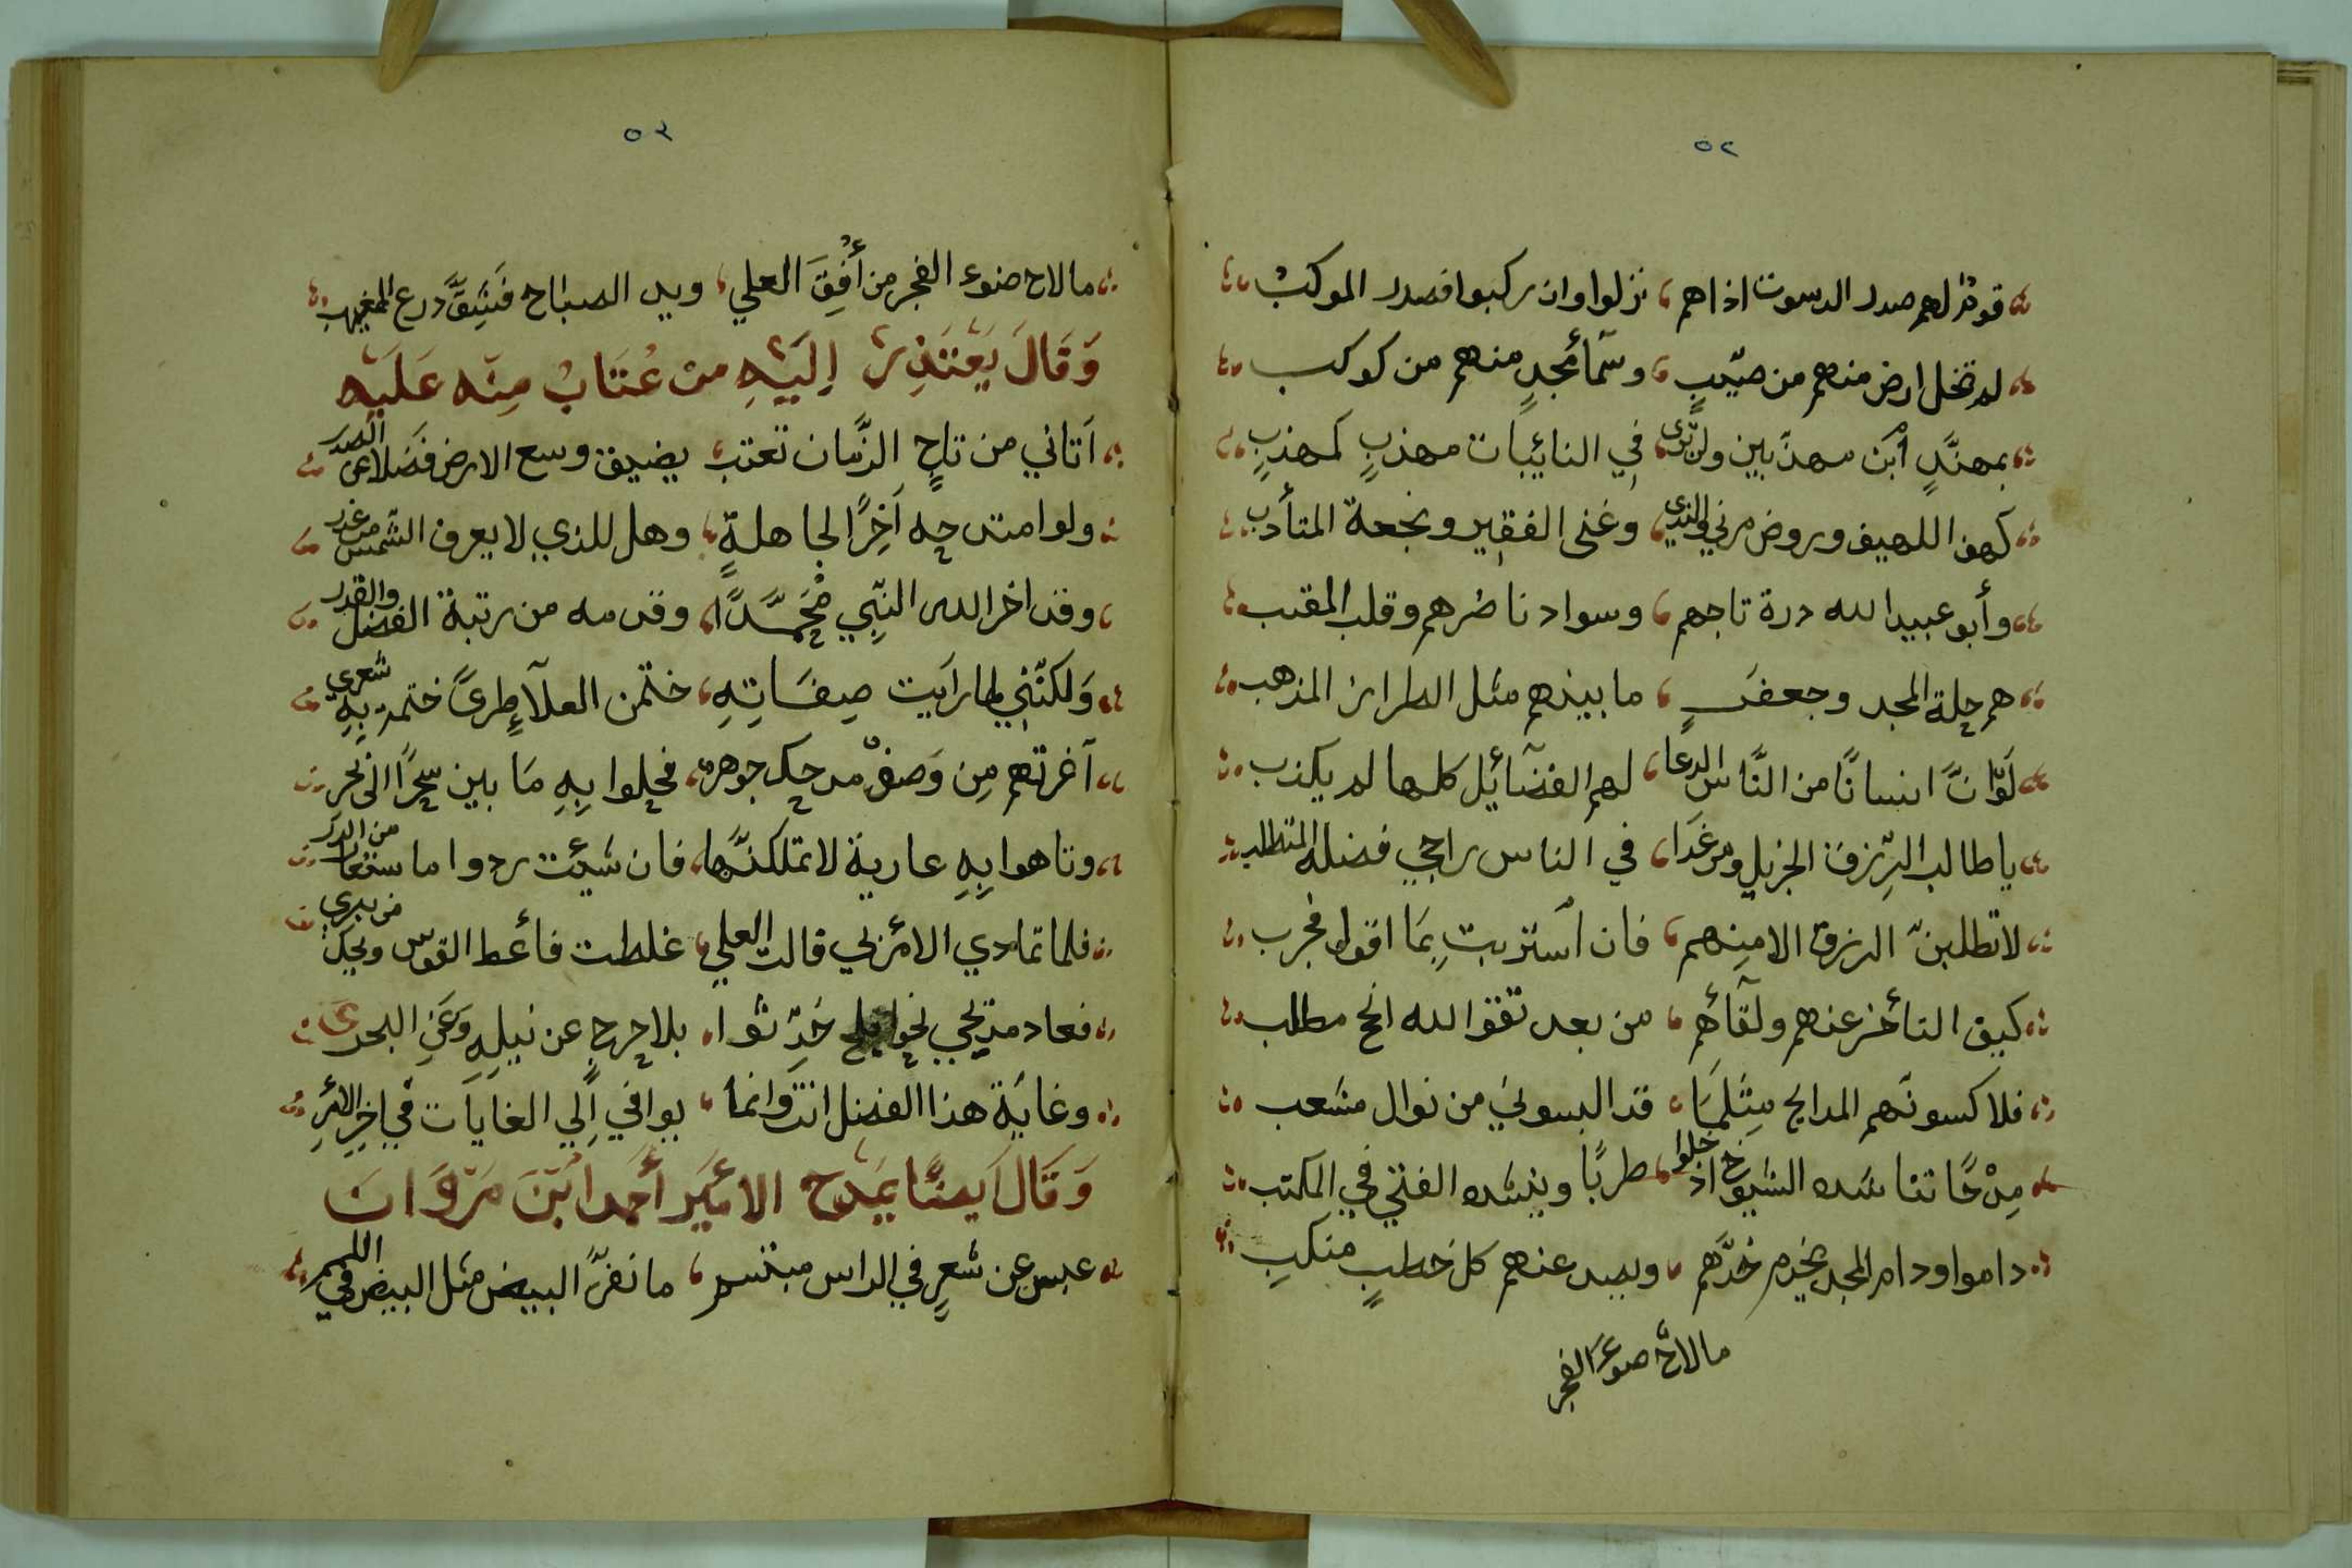 ٥٢
قوم لهم صدر الدسوت اذاهم نزلوا وان ركبوا فصدر الموكبْ
لم تخل ارض منهم من صيّبٍ وسَمَأ مجدٍ منهم من كوكب
بمهنَّدٍ أبن مهذّبين ولن ترى في النائِبات مهذبٍ كمهذبٍ
كهف اللهيف وروض مرني والندي وغنى الفقير ونجعة المتأدب
وأبو عبيد الله درة تاجهم وسواد ناظرهم وقلب المقنب
هم حلة المجد وجعفرٍ ما بينهم مثل الطراز المذهب
لَوْ انَّ انسانًا من النَّاس الدعا لهم الفضآئِل كلها لم يكذب
يا طالب الرِّزق الجزيل ومرغدا في الناس راجي فضله المتطلب
لا تطلبنّ الرزق الا منهم فان أسترَبت بِمَا اقول فجرب
كيف التأخر عنهم ولقآئهم من بعد تقوَ الله انجح مطلب
فلاكسونّهم المدايح مِثلمَا قد البسوني من نوال مشعب
مِدْحًا تناشده الشيوخ اذ خلوا طربًا وينشده الفتي في المكتب
داموا ودام المجد يخدم خدّهم ويصد عنهم كل خطبٍ منكبِ
مالاح ضوءَ الفجر
٥٣
مالاح ضوء الفجر من أُفِقَ العلي ويد الصباح فَشَقَّ درع الغيهبِ
وَقَالَ يَعْتَذِرُ اِلَيْهِ من عُتَابٌ مِنّه عَلَيْه
اَتاني من تاجٍ الزَّمان تعتب يضيق وسع الارض فَضلا عن الصدر
ولو امتدحه اَخِرًا لجاهلةٍ وهل للذي لا يعرف الشمس من عذر
وقد اخر الله النبِّي محُمَّدًا وقدمه من رتبة الفضل والقدر
وَلكنّني لما رايت صِفَاتِهِ ختمن العلآءِ طرىً ختمت بِهِ شعري
اَغرتهم مِن وَصفْ مدحك جوهرة فحلوا بِهِ مَا بين سحرًا الى نحر
وتاهوا بِهِ عارية لا تملكنَّها فان شئت ردوا ما ستعار من الدر
فلما تمادي الامْر بي قالت العلي غلطت فأعط القوس ويحك من يبري
فعاد مديحي نحو حَدِّثوا بلا حرجٍ عن نيلِهِ وَعَنِ البحر
وغايَة هذا الفضل انت وانما يوافي اِلي الغايات في اخِرِ الامْرِ
وَقَالَ اَيضًا يَمْدَح الامْيَر أحمد ابْنَ مَرْوَانَ
عبس عن شعرٍ في الراس مبتسم ما نفرَّ البيض مثل البيض في اللمم